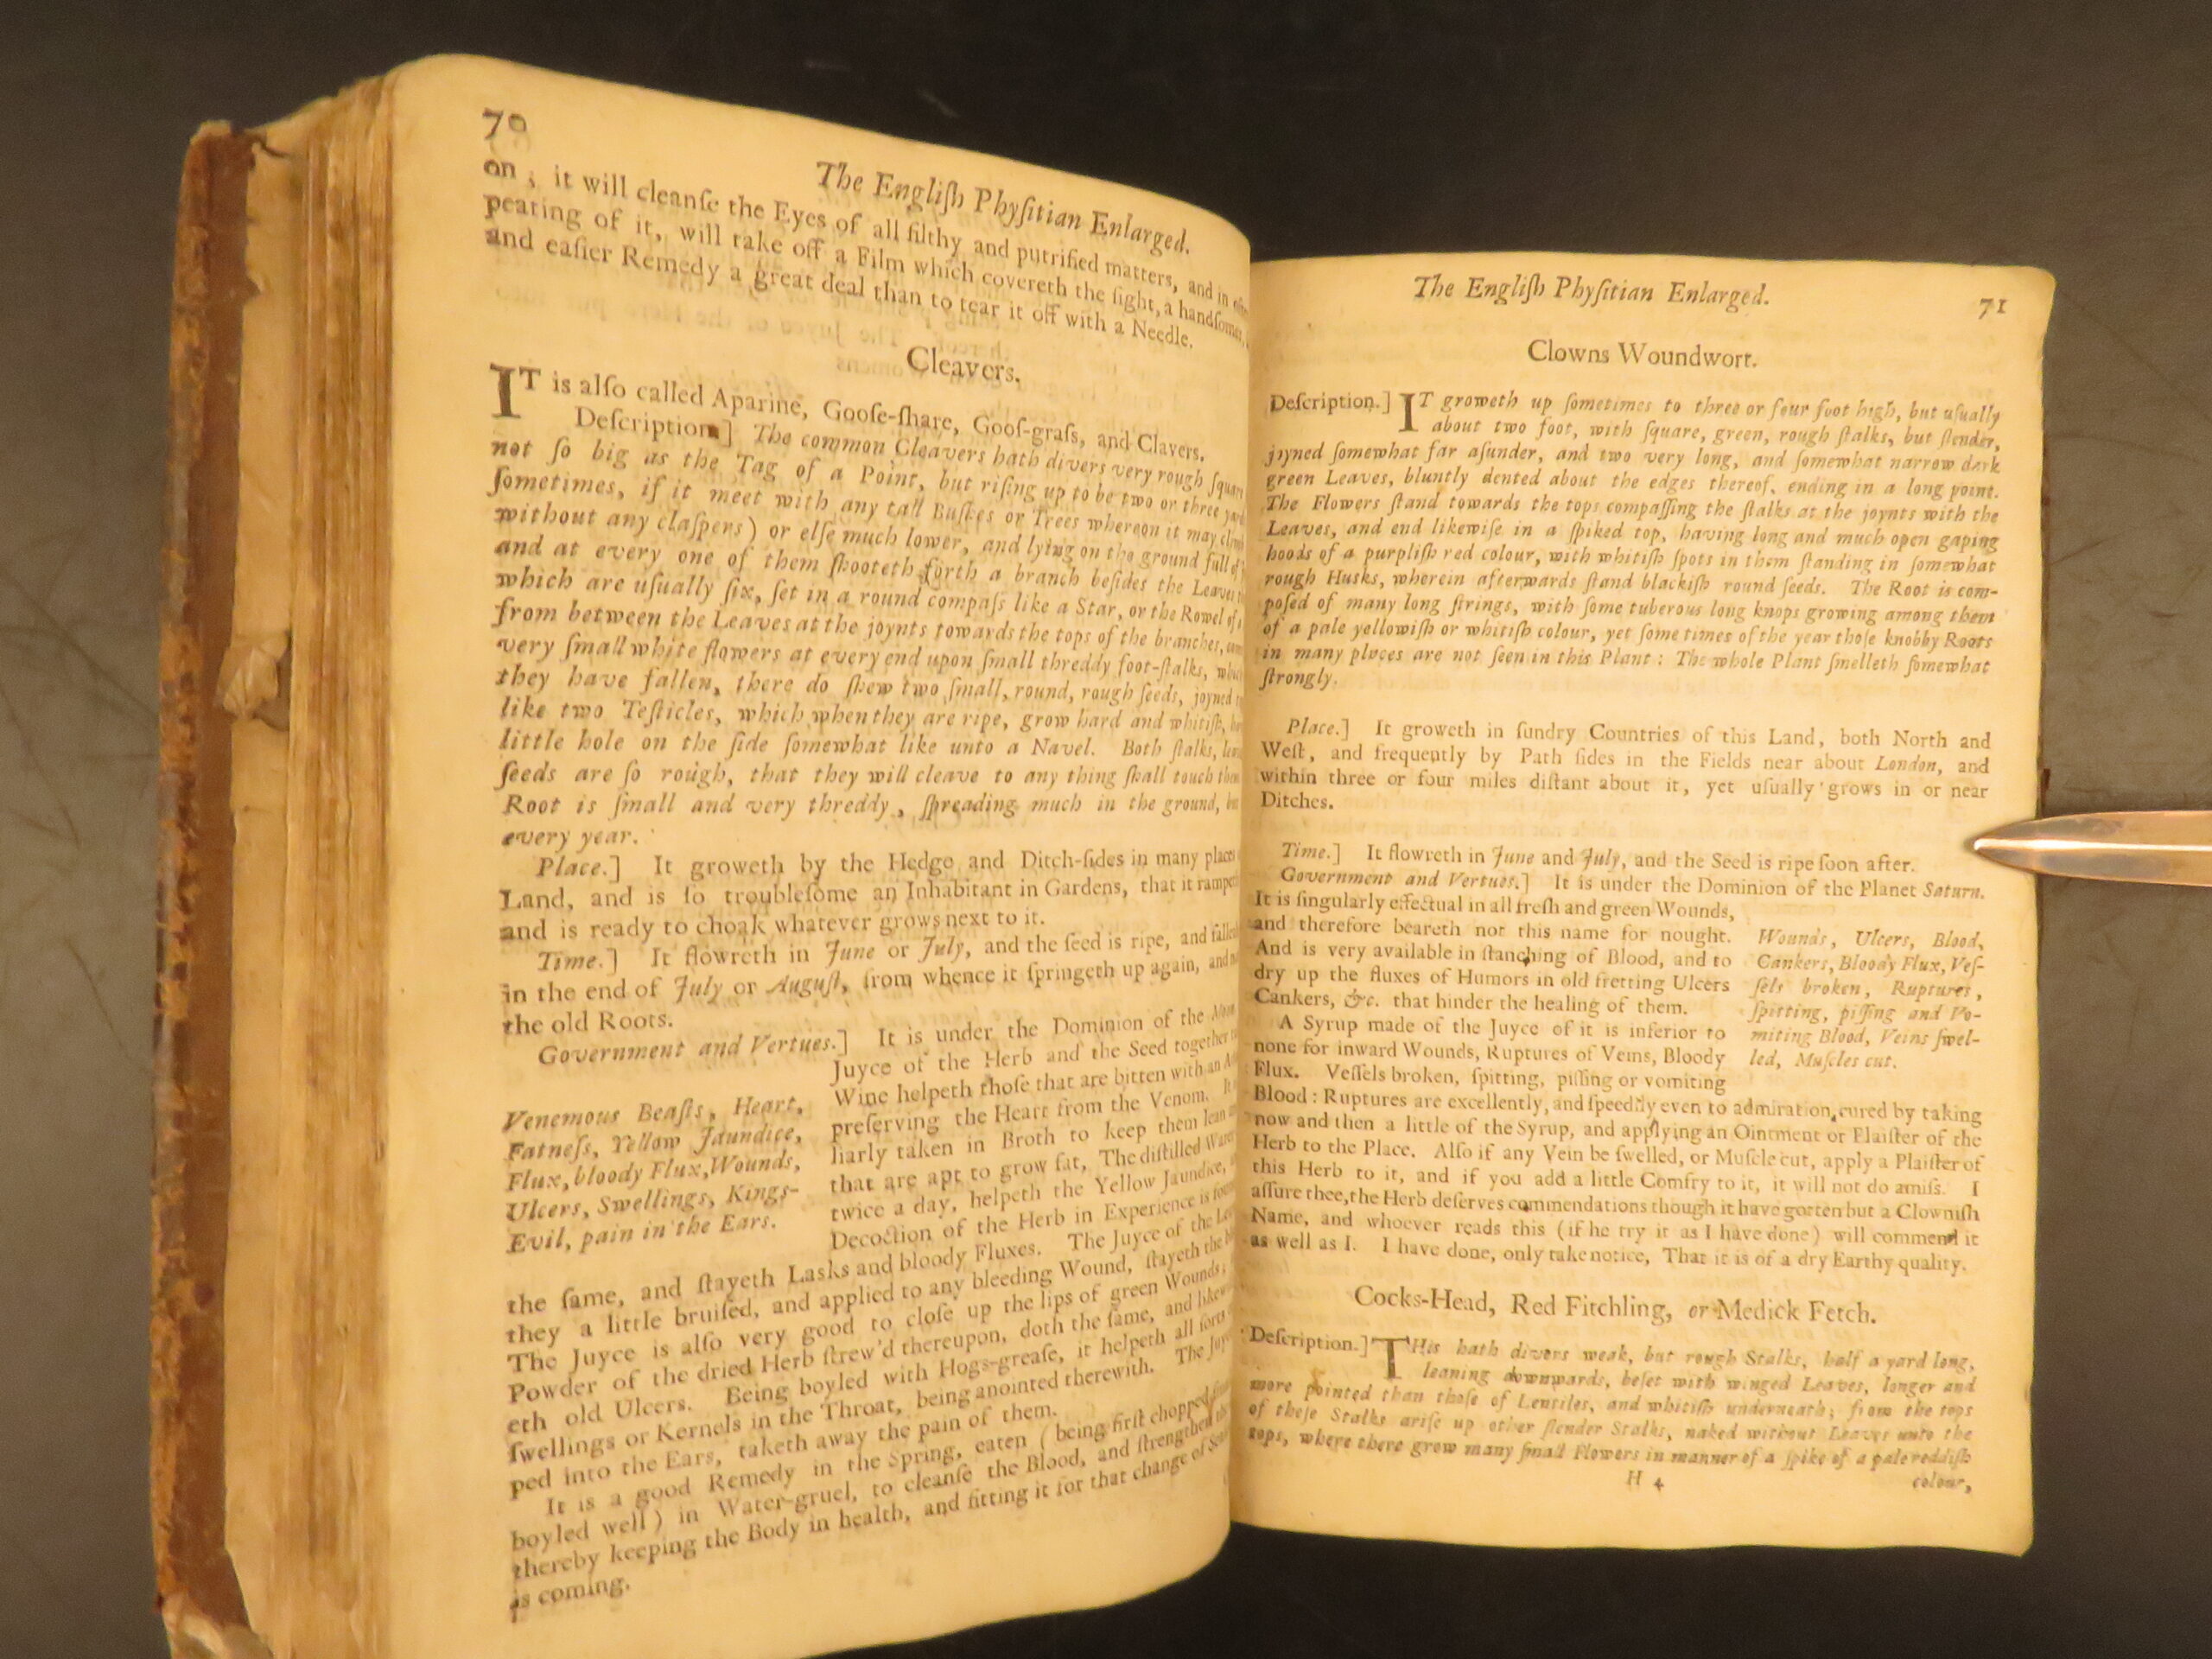 70
The Engliſh Phyſitian Enlarged.
on ; it will cleanſe the Eyes of all filthy and putrified matters, and in
peating of it, will take off a Film which covereth the ſight, a
and eaſier Remedy a great deal than to tear it off with a Needle.
Cleavers.
IT is alſo called Aparine, Gooſe-ſhare, Gooſ-graſs, and Clavers.
Deſcription.] The common Cleavers hath divers very rough
not ſo big as the Tag of a Point, but riſing up to be two or three
ſometimes, if it meet with any tall Buſhes or Trees whereon it may
without any claſpers) or elſe much lower, and lying on the ground full
and at every one of them ſhooteth forth a branch beſides the
which are uſually ſix, ſet in a round compaſs like a Star, or the Rowel
from between the Leaves at the joynts towards the tops of the branches,
very ſmall white flowers at every end upon ſmall threddy foot-ſtalks,
they have fallen, there do ſhew two ſmall, round, rough ſeeds, joyned
like two Teſticles, which when they are ripe, grow hard and whitiſh,
little hole on the ſide ſomewhat like unto a Navel. Both ſtalks,
ſeeds are ſo rough, that they will cleave to any thing ſhall touch
Root is ſmall and very threddy, ſpreading much in the ground,
every year.
Place.] It groweth by the Hedge and Ditch-ſides in many
Land, and is ſo troubleſome an Inhabitant in Gardens, that it
and is ready to choak whatever grows next to it.
Time.] It flowreth in June or July, and the ſeed is ripe, and
in the end of July or Auguſt, from whence it ſpringeth up again,
the old Roots.
Government and Vertues.] It is under the Dominion of the
Juyce of the Herb and the Seed together
Wine helpeth thoſe that are bitten with an
preſerving the Heart from the Venom.
liarly taken in Broth to keep them lean
that are apt to grow fat, The diſtilled
twice a day, helpeth the Yellow Jaundice,
Decoction of the Herb in Experience is
Venemous Beaſts, Heart,
Fatneſs, Yellow Jaundice,
Flux, bloody Flux, Wounds,
Ulcers, Swellings, Kings-
Evil, pain in the Ears.
the ſame, and ſtayeth Lasks and bloody Fluxes. The Juyce of the
they a little bruiſed, and applied to any bleeding Wound, ſtayeth the
The Juyce is alſo very good to cloſe up the lips of green Wounds;
Powder of the dried Herb ſtrew'd thereupon, doth the ſame, and
eth old Ulcers. Being boyled with Hogs-greaſe, it helpeth all
ſwellings or Kernels in the Throat, being anointed therewith. The
ped into the Ears, taketh away the pain of them.
It is a good Remedy in the Spring, eaten (being firſt chopped
boyled well) in Water-gruel, to cleanſe the Blood, and ſtrengthen
thereby keeping the Body in health, and fitting it for that change of
is coming.
The Engliſh Phyſitian Enlarged.
71
Clowns Woundwort.
Deſcription.] IT groweth up ſometimes to three or four foot high, but uſually
about two foot, with ſquare, green, rough ſtalks, but ſlender,
joyned ſomewhat far aſunder, and two very long, and ſomewhat narrow dark
green Leaves, bluntly dented about the edges thereof, ending in a long point.
The Flowers ſtand towards the tops compaſſing the ſtalks at the joynts with the
Leaves, and end likewiſe in a ſpiked top, having long and much open gaping
hoods of a purpliſh red colour, with whitiſh ſpots in them ſtanding in ſomewhat
rough Husks, wherein afterwards ſtand blackiſh round ſeeds. The Root is com-
poſed of many long ſtrings, with ſome tuberous long knops growing among them
of a pale yellowiſh or whitiſh colour, yet ſome times of the year thoſe knobby Roots
in many places are not ſeen in this Plant : The whole Plant ſmelleth ſomewhat
ſtrongly.
Place.] It groweth in ſundry Countries of this Land, both North and
Weſt, and frequently by Path ſides in the Fields near about London, and
within three or four miles diſtant about it, yet uſually grows in or near
Ditches.
Time.] It flowreth in June and July, and the Seed is ripe ſoon after.
Government and Vertues.] It is under the Dominion of the Planet Saturn.
It is ſingularly effectual in all freſh and green Wounds,
and therefore beareth not this name for nought.
And is very available in ſtanching of Blood, and to
dry up the fluxes of Humors in old fretting Ulcers
Cankers, &c. that hinder the healing of them.
A Syrup made of the Juyce of it is inferior to
none for inward Wounds, Ruptures of Veins, Bloody
Flux. Veſſels broken, ſpitting, piſſing or vomiting
Wounds, Ulcers, Blood,
Cankers, Bloody Flux, Veſ-
ſels broken, Ruptures,
ſpitting, piſſing and Vo-
miting Blood, Veins ſwel-
led, Muſcles cut.
Blood : Ruptures are excellently, and ſpeedily even to admiration, cured by taking
now and then a little of the Syrup, and applying an Ointment or Plaiſter of the
Herb to the Place. Alſo if any Vein be ſwelled, or Muſcle cut, apply a Plaiſter of
this Herb to it, and if you add a little Comfry to it, it will not do amiſs. I
aſſure thee, the Herb deſerves commendations though it have gotten but a Clowniſh
Name, and whoever reads this (if he try it as I have done) will commend it
as well as I. I have done, only take notice, That it is of a dry Earthy quality.
Cocks-Head, Red Fitchling, or Medick Fetch.
Deſcription.] THis hath divers weak, but rough Stalks, half a yard long,
leaning downwards, beſet with winged Leaves, longer and
more pointed than thoſe of Lentiles, and whitiſh underneath; from the tops
of theſe Stalks ariſe up other ſlender Stalks, naked without Leaves unto the
tops, where there grow many ſmall Flowers in manner of a ſpike of a pale reddiſh
H 4
colour,